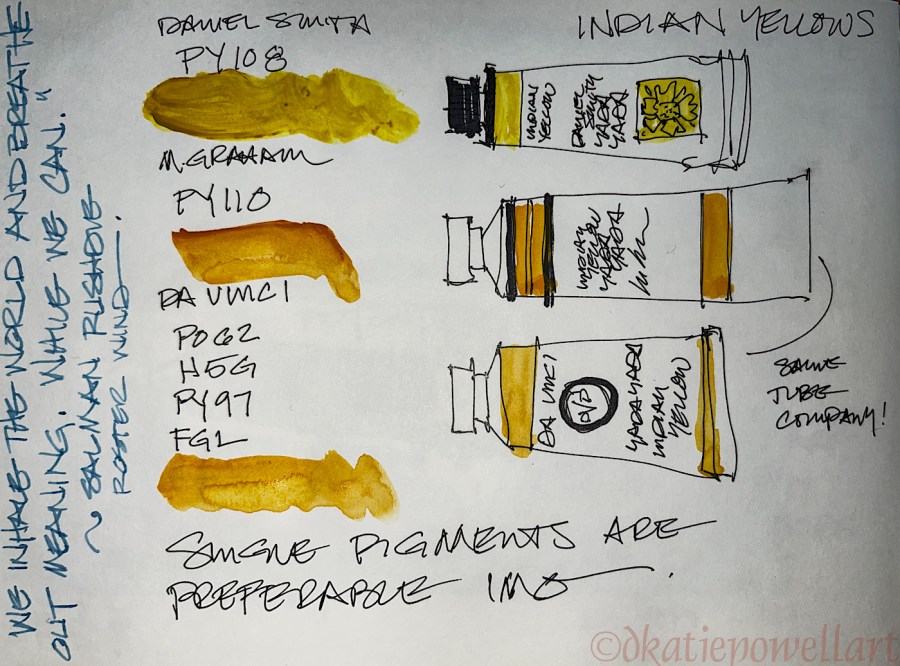 INDIAN YELLOWS
DANIEL SMITH
PY108
INDIAN
YELLOW
DANIEL
SMITH
YADA
YADA
M. GRAHAM
PY110
INDIAN
YELLOW
YADA
YADA
DA VINCI
PO62
H5G
PY97
FGL
DA VINCI
YADA YADA
INDIAN
YELLOW
SAME
TUBE
COMPANY!
SINGLE PIGMENTS ARE
PREFERABLE IMO.
WE INHALE THE WORLD AND BREATHE
OUT MEANING. WHILE WE CAN."
~ SALMAN RUSHDIE
ROSTER WIND
©dkatiepowellart